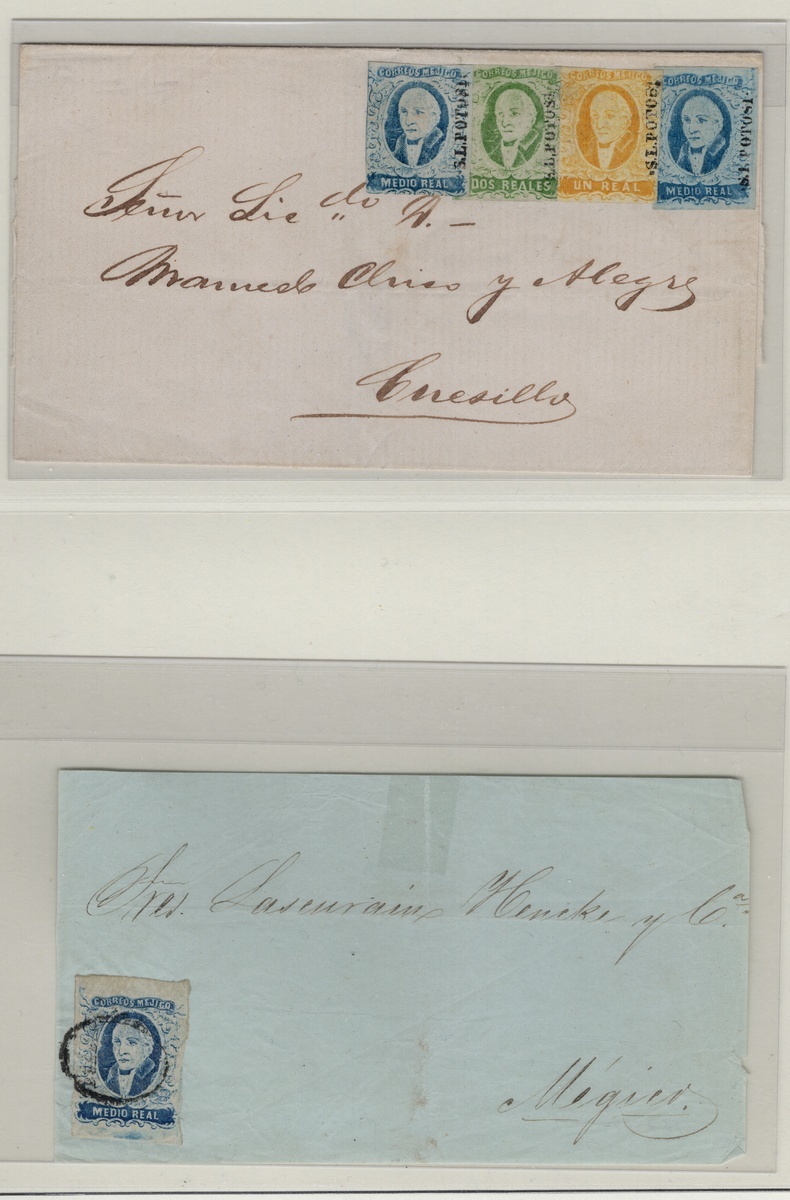 CORREOS MEJICO CORREOS MEJICO CORREOS MEJICO CORREOS MEJICO
S.L.POTOSI. S.L.POTOSI. S.L.POTOSI. S.L.POTOSI.
MEDIO REAL DOS REALES UN REAL MEDIO REAL
Señor Lic do D. –
y Alegre
Sres. Lascurain y Ca.
CORREOS MEJICO
MEDIO REAL
Mégico.